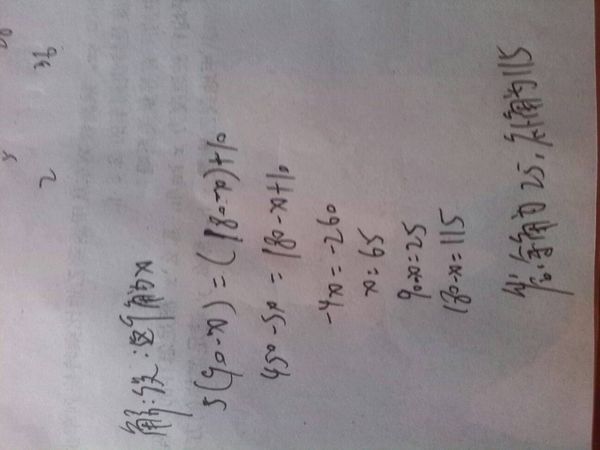 解:设:这个角为x
5(90-x)=(180-x)+10
450-5x=180-x+10
-4x=-260
x=65
90-x=25
180-x=115
答:余角为25,补角为115